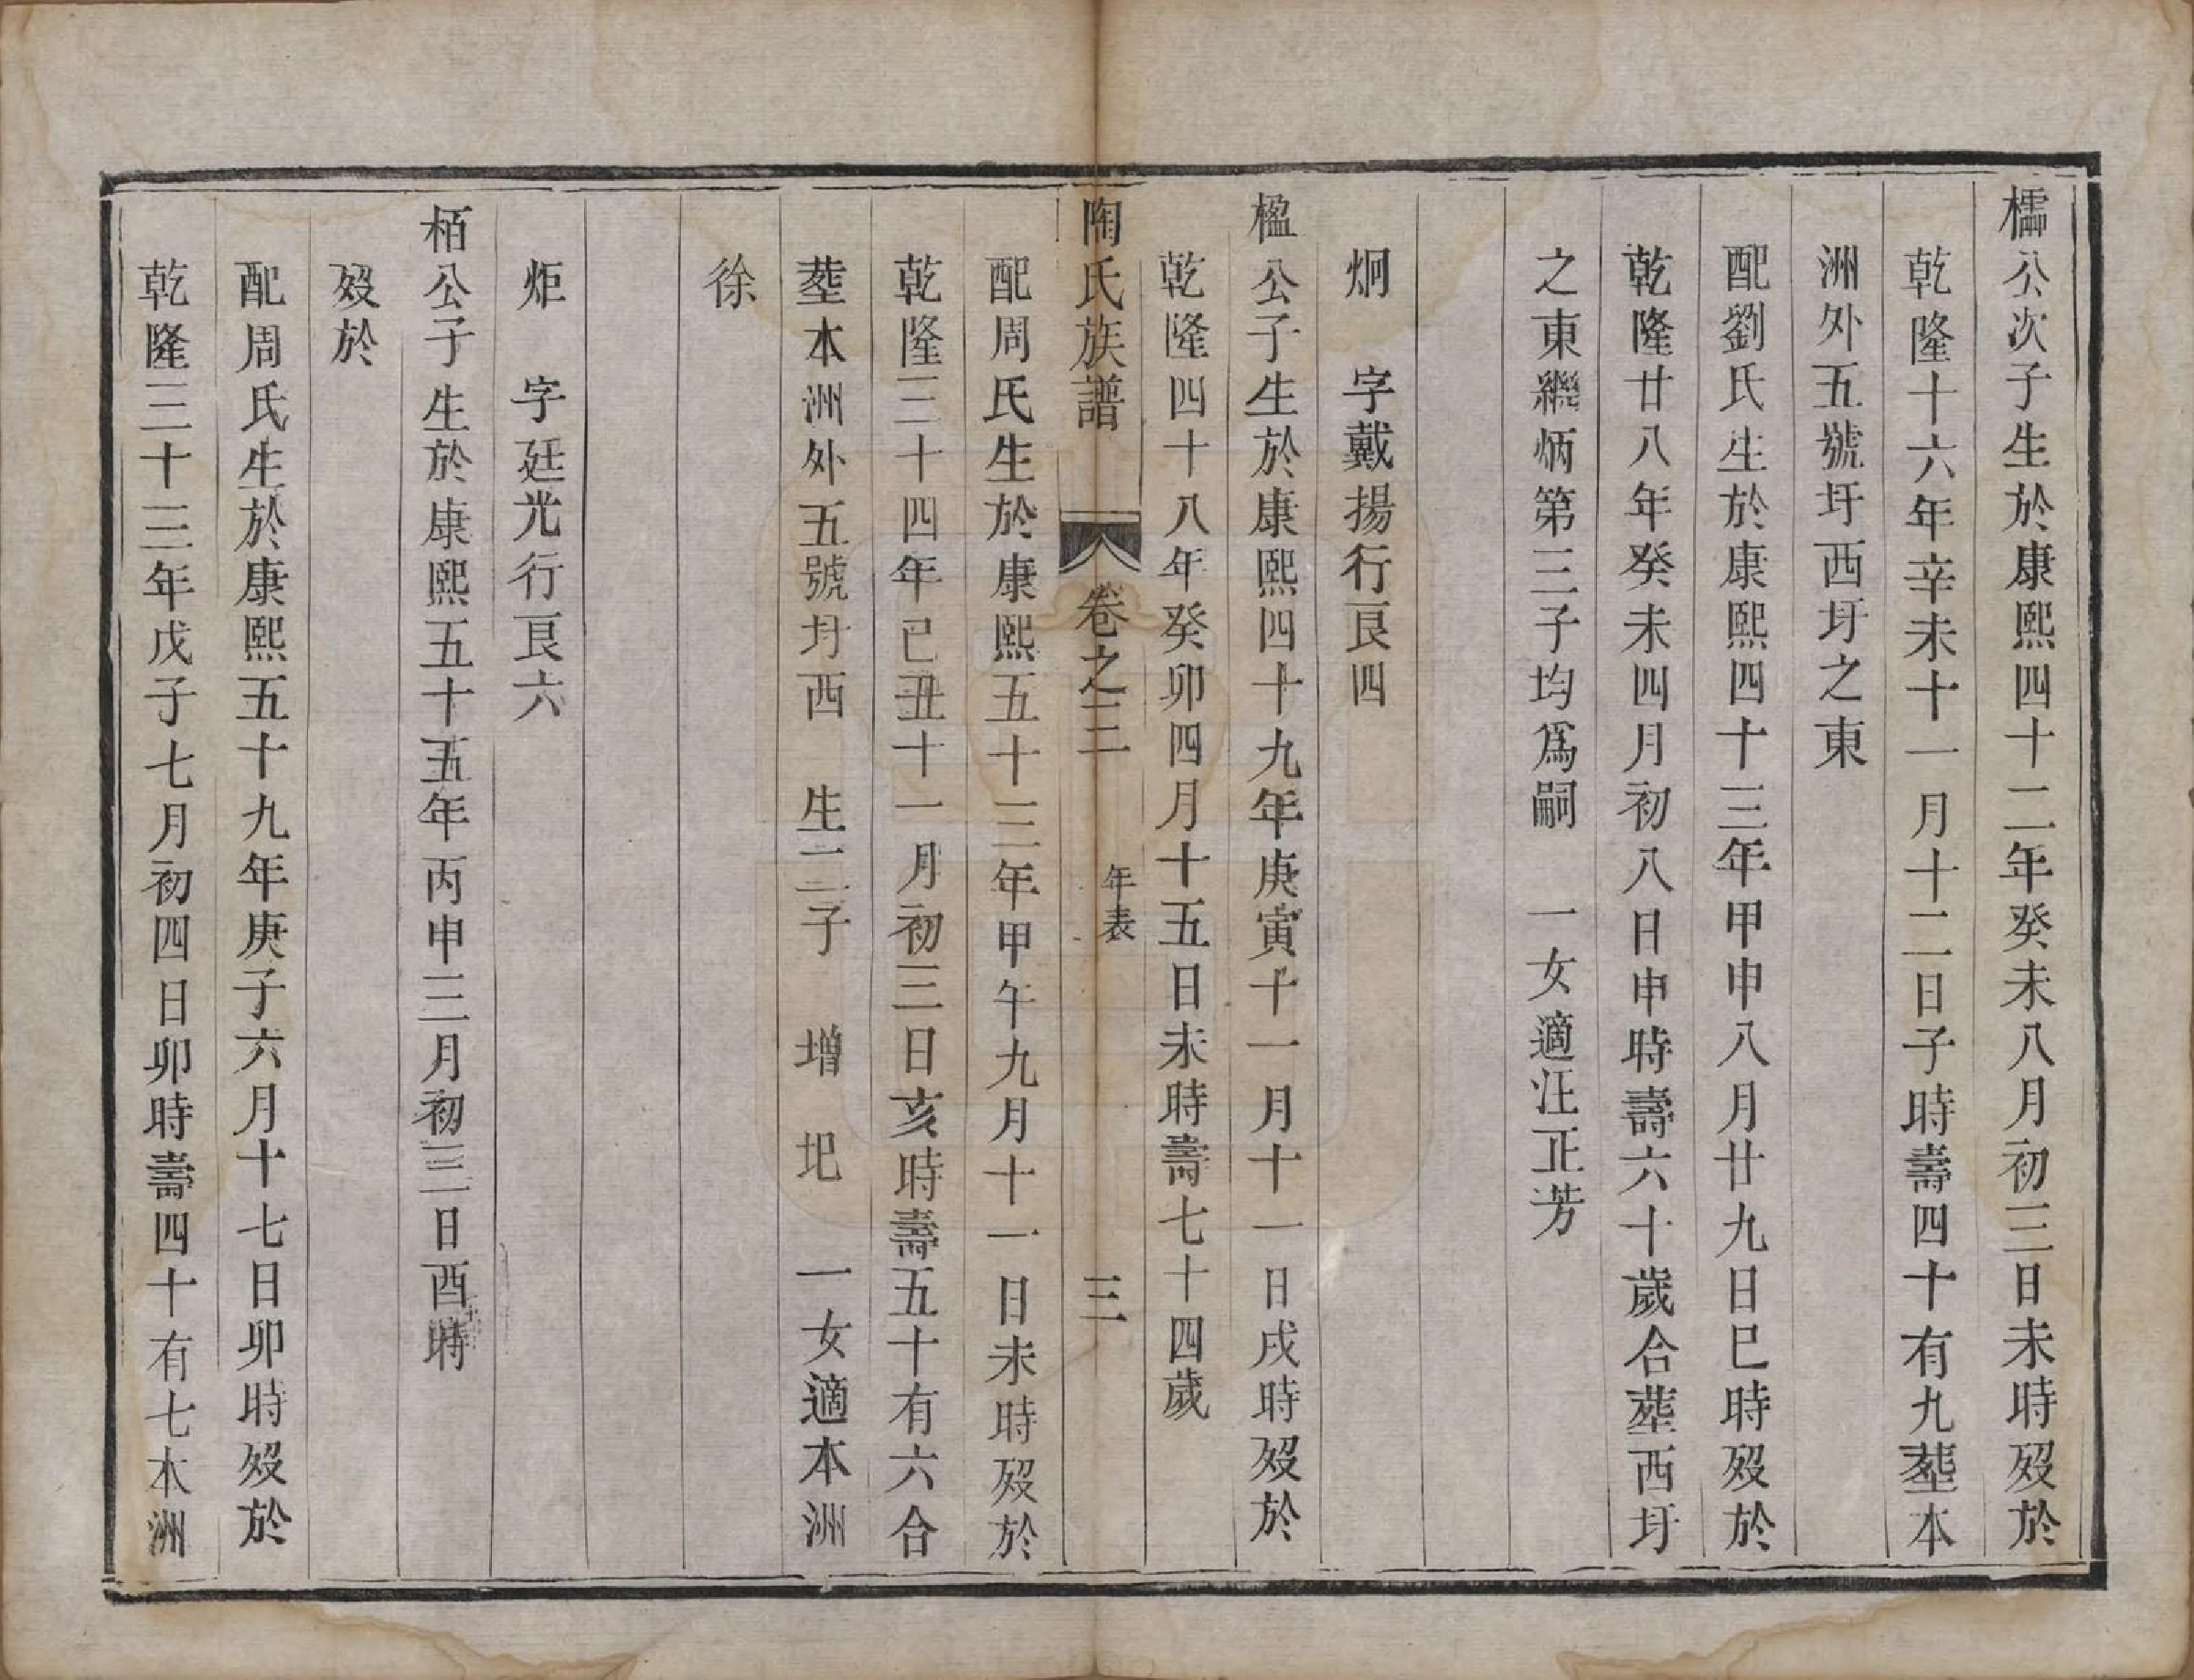 檽公次子生於康熙四十二年癸未八月初三日未時歿於
乾隆十六年辛未十一月十二日子時壽四十有九塟本
洲外五號圩西圩之東
配劉氏生於康熙四十三年甲申八月廿九日巳時歿於
乾隆廿八年癸未四月初八日申時壽六十歲合塟西圩
之東繼炳第三子均爲嗣　一女適汪正芳
炯　字戴揚行艮四
楹公子生於康熙四十九年庚寅十一月十一日戌時歿於
乾隆四十八年癸卯四月十五日未時壽七十四歲
陶氏族譜　卷之三　年表　三
配周氏生於康熙五十三年甲午九月十一日未時歿於
乾隆三十四年己丑十一月初三日亥時壽五十有六合
塟本洲外五號圩西　生二子　增　圯　一女適本洲
徐
炬　字廷光行艮六
栢公子生於康熙五十五年丙申三月初三日酉時
歿於
配周氏生於康熙五十九年庚子六月十七日卯時歿於
乾隆三十三年戊子七月初四日卯時壽四十有七本洲